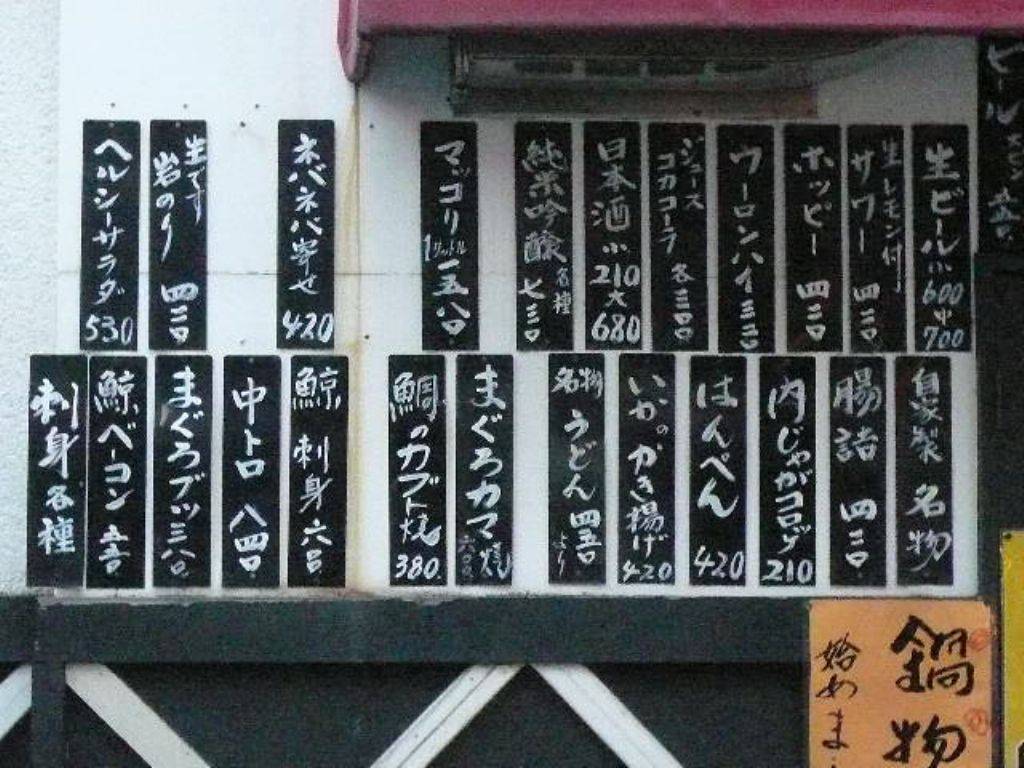 生ビール小600中700
生レモン付サワー 四三〇
ホッピー 四三〇
ウーロンハイ三三〇
ジュース コカコーラ 各三〇〇
日本酒小210大680
純米吟醸各種七三〇
マッコリ1リットル一五八〇
ネバネバ寄せ420
生です岩のり 四三〇
ヘルシーサラダ530
自家製 名物
腸詰 四三〇
肉じゃがコロッケ210
はんぺん 420
いかのかき揚げ420
名物うどん四五〇より
まぐろカマ焼六八〇
鯛のカブト焼380
鯨刺身六八〇
中トロ八四〇
まぐろブツ三八〇
鯨ベーコン五五〇
刺身各種
鍋物
始めま